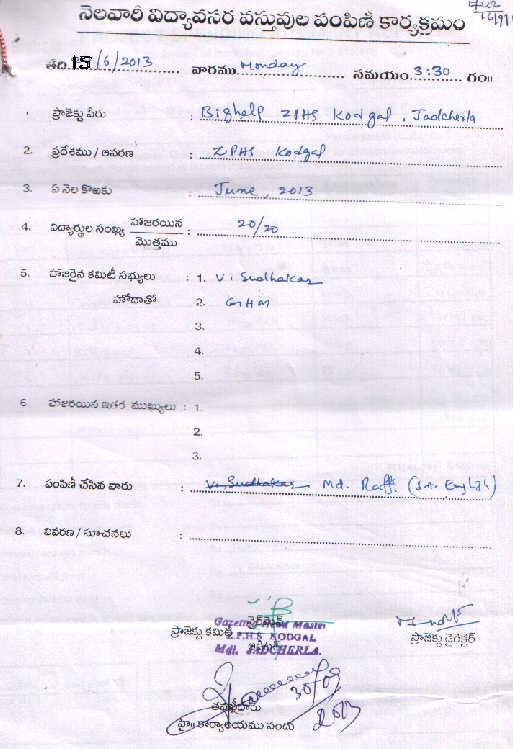 నెలవారీ విద్యావసర వస్తువుల పంపిణీ కార్యక్రమం
తేది. 15/6/2013 వారము Monday సమయం. 3:30 గం॥
1. ప్రాజెక్టు పేరు : Bighelp ZPHS Kodgal, Jadcherla
2. ప్రదేశము / ఆవరణ : ZPHS Kodgal
3. ఏ నెల కొఱకు : June, 2013
4. విద్యార్థుల సంఖ్య హాజరయిన / మొత్తము : 20/20
5. హాజరైన కమిటీ సభ్యులు : 1. V. Sudhakar
హోదాతో 2. GHM
3.
4.
5.
6. హాజరయిన ఇతర ముఖ్యులు : 1.
2.
3.
7. పంపిణీ చేసిన వారు : V. Sudhakar Md. Raffi (S.A. English)
8. వివరణ / సూచనలు :
Gazetted Head Master
ప్రాజెక్టు కమిటీ Z.P.H.S KODGAL ప్రాజెక్టు డైరెక్టర్
Mdl. JADCHERLA.
30/09
2013